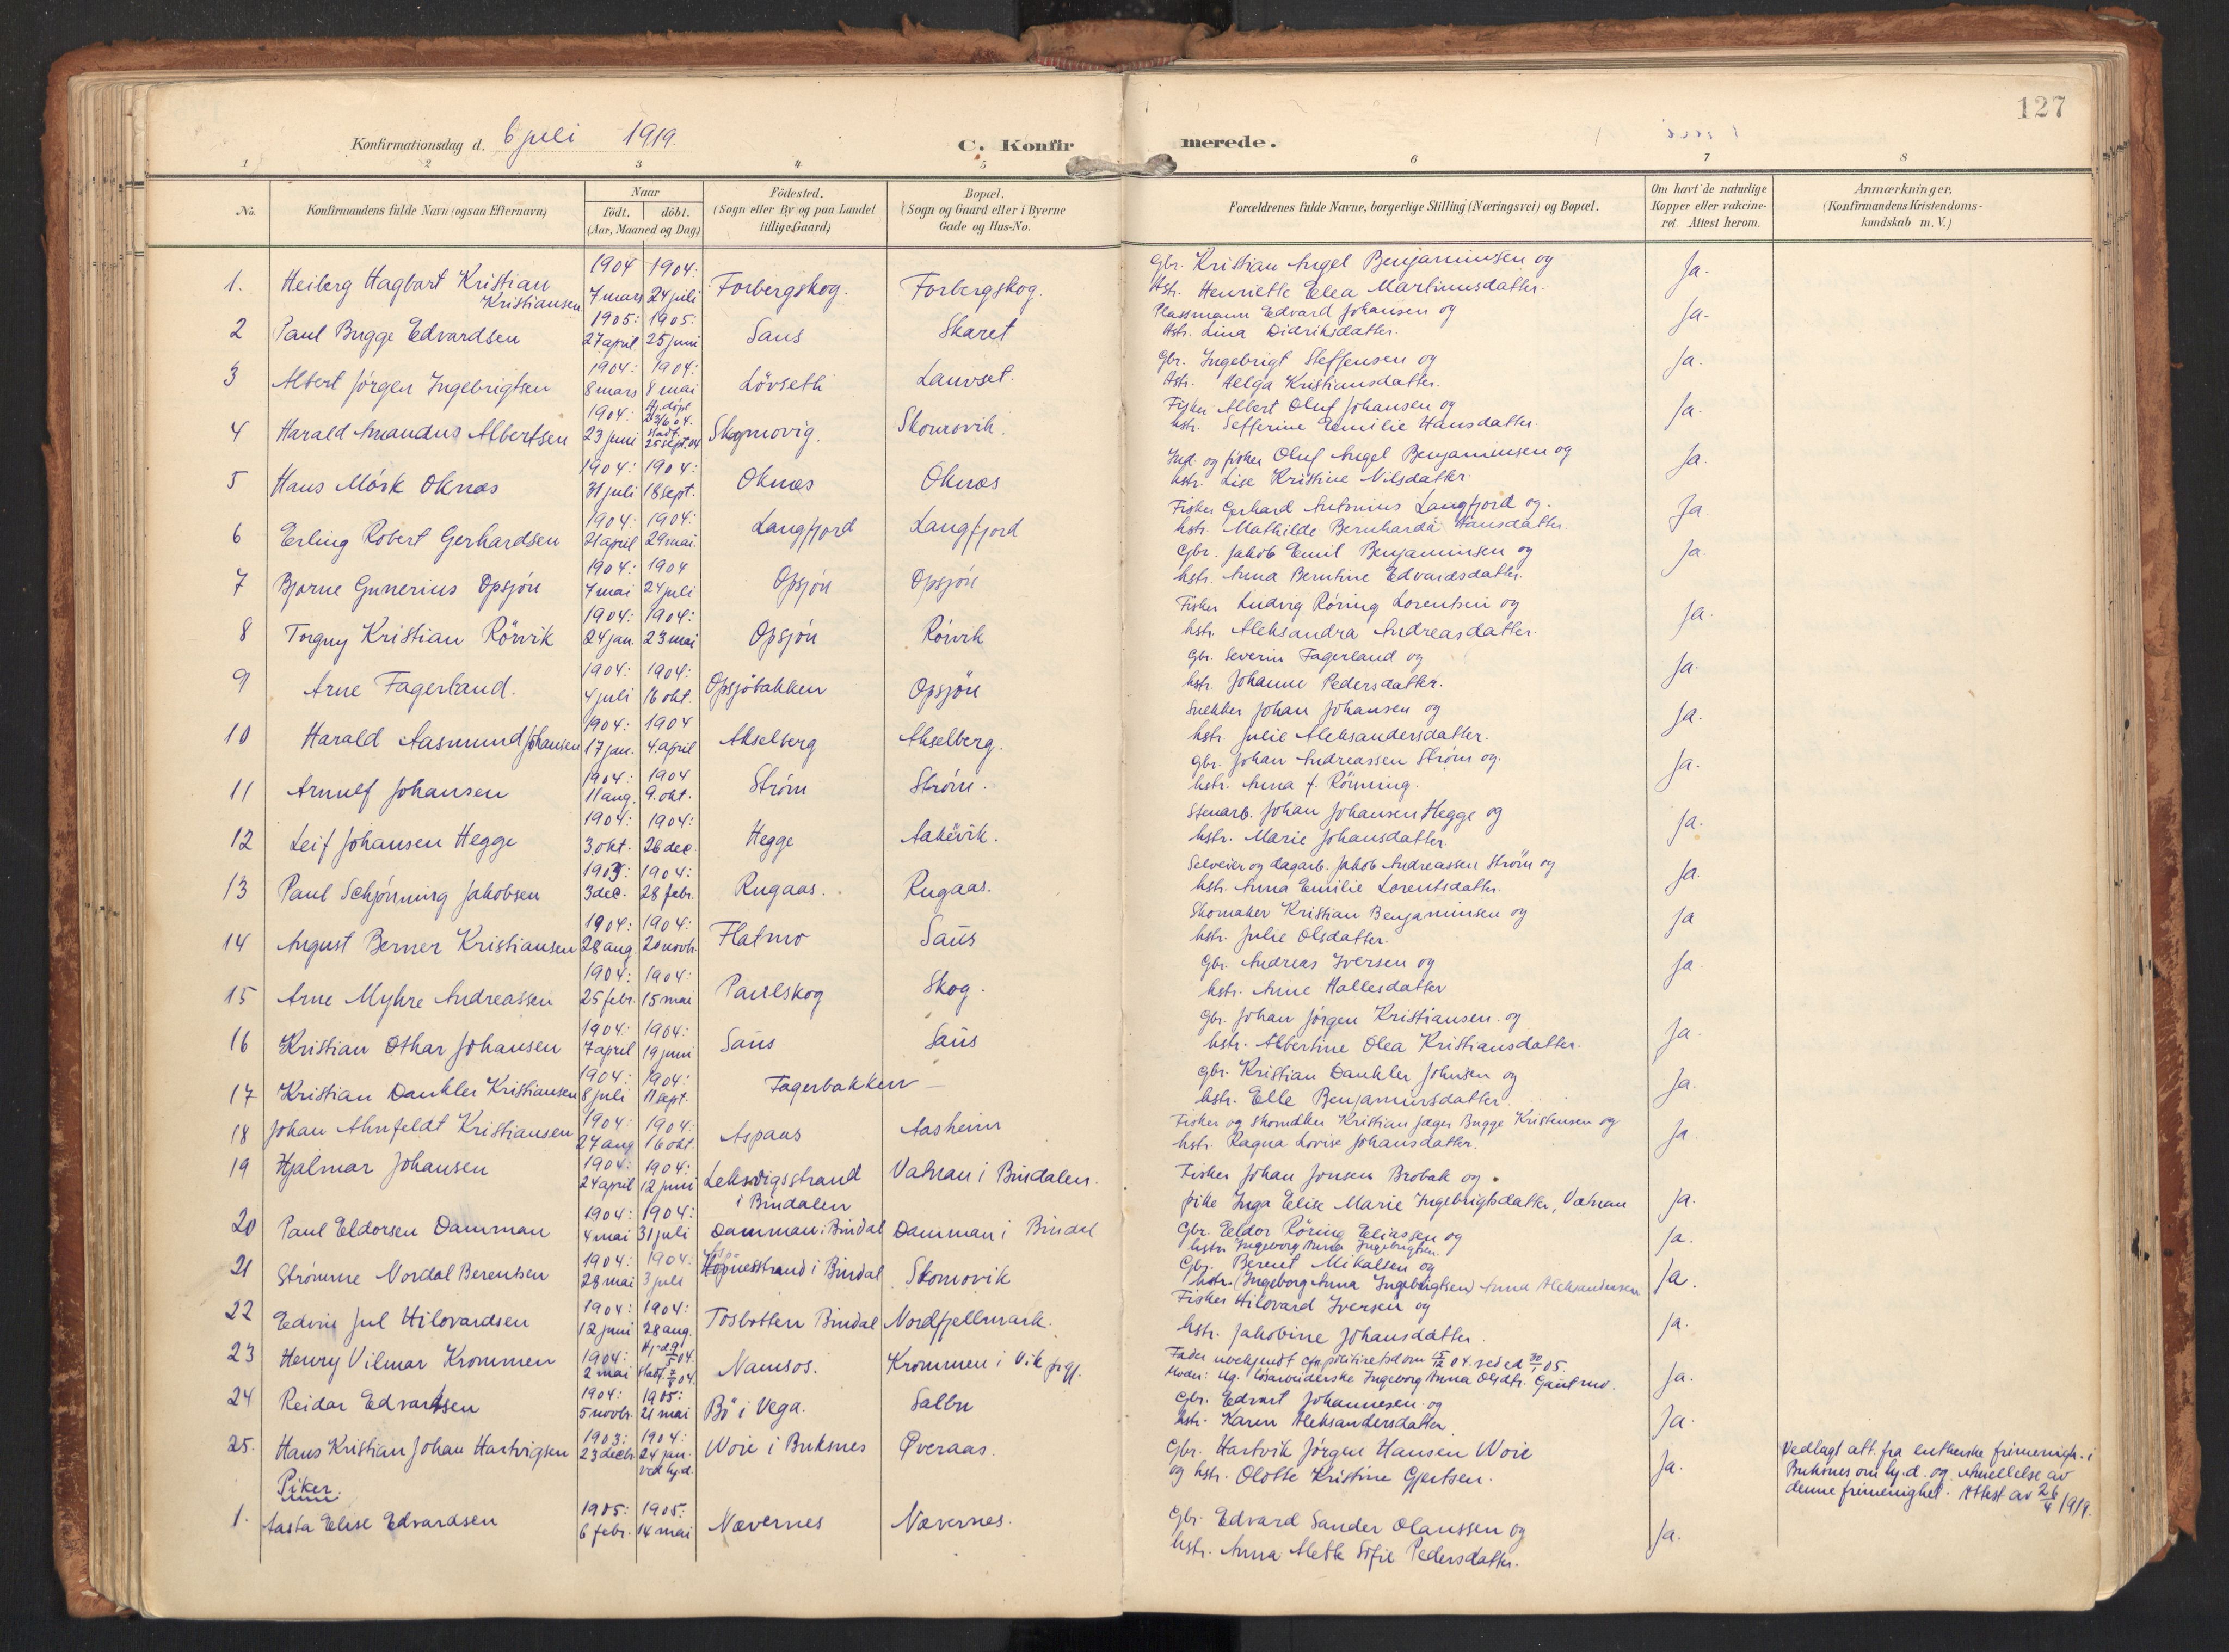 127
Konfirmationsdag d. 6 juli 1919.
C. Konfirmerede.
1 2 3 4 5 6 7 8
No.
Konfirmandens fulde Navn (ogsaa Efternavn)
Naar
født. døbt.
(Aar, Maaned og Dag)
Födested.
(Sogn eller By og paa Landet
tillige Gaard)
Bopæl.
(Sogn og Gaard eller i Byerne
Gade og Hus-No.
Forældrenes fulde Navne, borgerlige Stilling (Næringsvei) og Bopæl.
Om havt de naturlige
Kopper eller vakcine-
ret. Attest herom.
Anmærkninger,
(Konfirmandens Kristendoms-
kundskab m. V.)
1. Heiberg Hagbart Kristian Kristiansen 1904 7 mars 1904: 24 juli Forbergskog. Forbergskog. Gbr. Kristian Angel Benjaminsen og
hstr. Henriette Elea Martinusdatter. Ja.
2 Paul Bugge Edvardsen 1905: 27 april 1905: 25 juni Saus Skaret Plassmann Edvard Johansen og
hstr. Lina Didriksdatter. Ja.
3 Albert Jörgen Ingebrigtsen 1904: 8 mars 1904: 8 mai Lövseth Lauvset. Gbr. Ingebrigt Steffensen og
hstr. Helga Kristiansdatter. Ja.
4 Harald Amandus Albertsen 1904: 23 juni Hj.döpt 23/6 04. stadf. 25 sept. 04 Skogmovig. Skomovik. Fisker Albert Oluf Johansen og
hstr. Sefferine Emilie Hansdatter. Ja.
5 Hans Mörk Oknæs 1904: 31 juli 1904: 18 sept. Oknæs Oknes Ind. og fisker Oluf Angel Benjaminsen og
hstr. Lise Kristine Nilsdatter Ja.
6 Erling Robert Gerhardsen 1904: 21 april 1904: 29 mai. Langfjord Langfjord Fisker Gerhard Antonius Langfjord og
hstr. Mathilde Bernharda Hansdatter. Ja.
7 Bjarne Gunerius Opsjön 1904: 7 mai 1904 24 juli Opsjön Opsjön Gbr. Jakob Emil Benjaminsen og
hstr. Anna Berntine Edvardsdatter. Ja.
8 Torgny Kristian Rörvik 1904: 24 jan. 1904: 23 mai Opsjön Rörvik Fisker Ludvig Röring Lorentsen og
hstr. Aleksandra Andreasdatter. Ja
9 Arne Fagerland. 1904: 4 juli 1904: 16 okt. Opsjöbakken Opsjön Gbr. Severin Fagerland og
hstr. Johanne Pedersdatter. Ja.
10 Harald Aasmund Johansen 1904: 17 jan. 1904 4. april Akselberg Akselberg. Snekker Johan Johansen og
hstr. Julie Aleksandersdatter. Ja.
11 Arnulf Johansen 1904: 11 aug. 1904 9. okt. Ström Ström. Gbr. Johan Andreassen Ström og
hstr. Anna f. Rönning. Ja.
12 Leif Johansen Hegge 1904: 3 okt. 1904: 26 dec. Hegge Aakvik. Stenarb. Johan Johansen Hegge og
hstr. Marie Johansdatter. Ja.
13 Paul Schjönning Jakobsen 1903: 3 dec. 1904: 28 febr. Rugaas. Rugaas. Selveier og dagarb. Jakob Andreassen Ström og
hstr. Anna Emilie Lorentsdatter. Ja.
14 August Berner Kristiansen 1904: 28 aug. 1904: 20 novbr. Flatmo Saus Skomaker Kristian Benjaminsen og
hstr. Julie Olsdatter. Ja
15 Arne Myhre Andreassen 1904: 25 febr. 1904: 15 mai Paulskog Skog. Gbr. Andreas Iversen og
hstr. Anne Hallesdatter Ja
16 Kristian Othar Johansen 1904: 7 april 1904: 19 juni Saus Saus Gbr. Johan Jörgen Kristiansen og
hstr. Albertine Olea Kristiansdatter. Ja.
17 Kristian Dankler Kristiansen 1904: 8 juli 1904: 11 sept. Fagerbakken Gbr. Kristian Dankler Johnsen og
hstr. Elle Benjaminsdatter. Ja.
18 Johan Ahnfeldt Kristiansen 1904: 27 aug 1904: 16 okt. Aspaas Aasheim Fisker og skomaker Kristian Jæger Bugge Kristensen og
hstr. Ragna Lovise Johansdatter. Ja
19 Hjalmar Johansen 1904: 24 april 1904: 12 juni Leksvigsstrand i Bindalen Vatnan i Bindalen. Fisker Johan Jonsen Brobak og
pike Inga Elise Marie Ingebrigtsdatter, Vatnan Ja.
20 Paul Eldorsen Damman 1904: 4 mai 1904: 31 juli Damman i Bindal Damman i Bindal Gbr. Eldor Röring Eliassen og
hstr. Ingeborg Anna Ingebrigtsen. Ja.
21 Strömme Nordal Berentsen 1904: 28 mai 1904: 3 juli i Bindal Skomovik Gbr. Berent Mikalsen og
hstr. (Ingeborg Anna Ingebrigtsen) Anna Aleksandersen Ja.
22 Edvin Jul Hilovardsen 1904: 12 juni 1904: 28 aug. Tosbotten Bindal Nordfjellmark. Fisker Hilovard Iversen og
hstr. Jakobine Johansdatter. Ja.
23 Henry Vilmar Krommen 1904: 2 mai Namsos. Krommen i Vik Fader ukjendt cfr. politiretsdom 15/12 04. 05.
Moder: Ug. lösarbeiderske Ingeborg Anna Olsdtr. Gautmo. Ja.
24 Reidar Edvartsen 1904: 5 novbr. 1905: 21 mai Bö i Vega. Salbu Gbr. Edvart Johannesen og
hstr. Karen Aleksandersdatter. Ja.
25. Hans Kristian Johan Hartvigsen 1903: 23 decbr 1904: 24 jan. ved hj.d. Woie i Buksnes Överaas. Gbr. Hartvik Jörgen Hansen Woie
og hstr. Olotte Kristine Gjertsen. Ja. Vedlagt att. fra lutherske frimenigh. i
Buksnes om hj.d. og av
denne frimenighet. Attest av 26/4 1919.
Piker.
1. Aasta Elise Edvardsen 1905: 6 febr. 1905: 14 mai Nævernes Nævernes. Gbr. Edvard Sander Olaussen og
hstr. Anna Mette Sofie Pedersdatter. Ja.